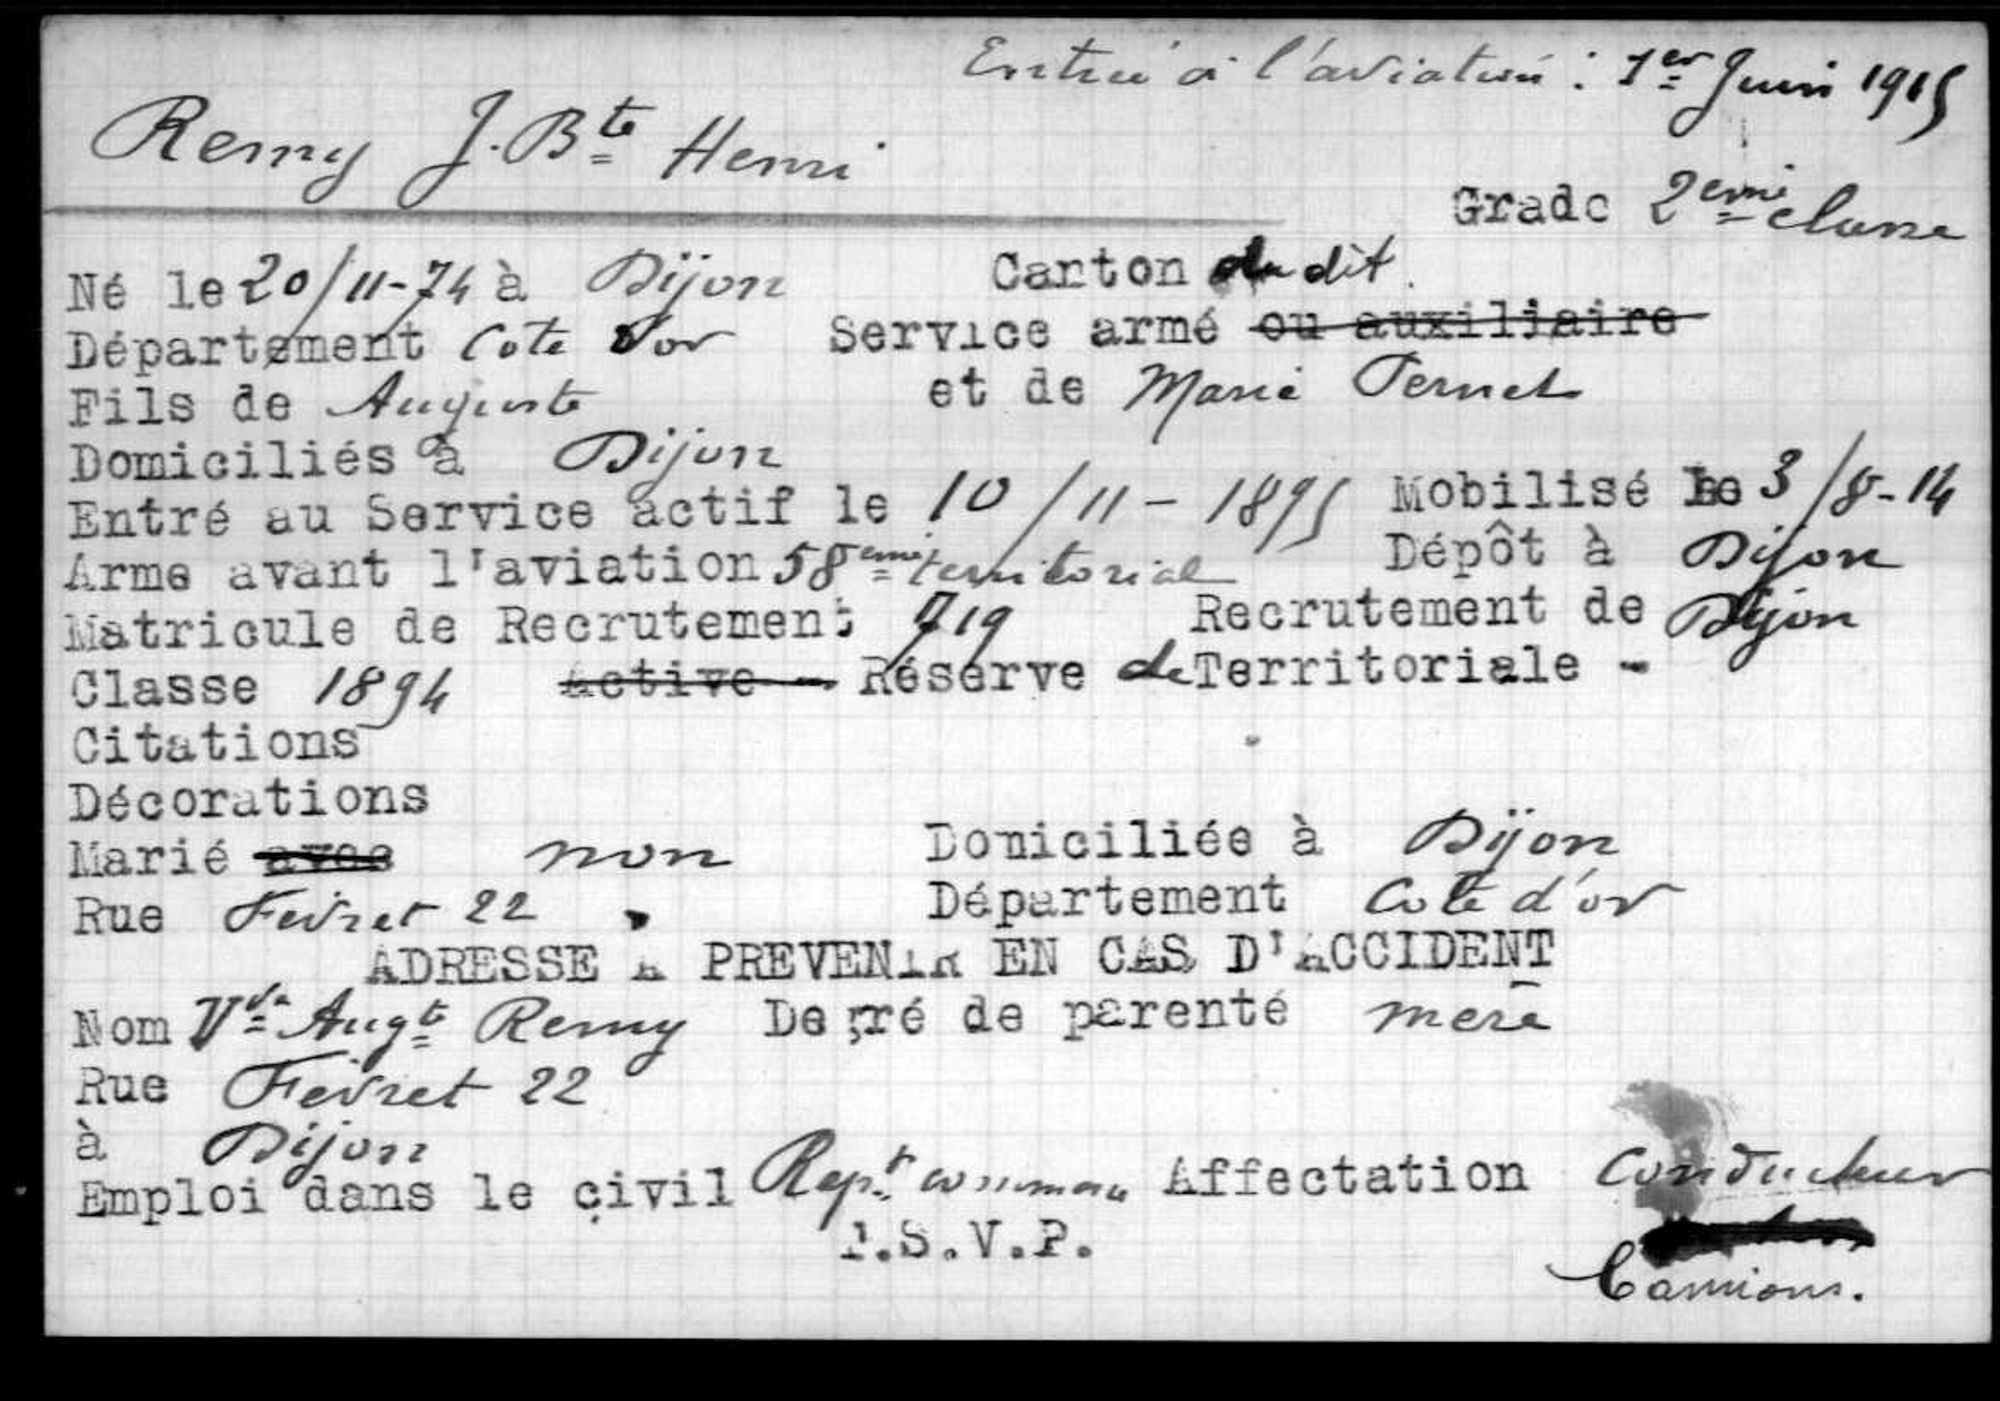 Entrée à l'aviation : 1er Juin 1915
Remy J. Bte Henri
Grade 2eme classe
Né le 20/11-74 à Dijon Canton du dit.
Département Cote d'or Service armé ou auxiliaire
Fils de Auguste et de Marie Pernet
Domiciliés à Dijon
Entré au Service actif le 10/11-1895 Mobilisé le 3/8-14
Arme avant l'aviation 58eme territorial Dépôt à Dijon
Matricule de Recrutement 719 Recrutement de Dijon
Classe 1894 Active - Réserve de Territoriale -
Citations
Décorations
Marié avec non Domiciliée à Dijon
Rue Fevret 22 Département Cote d'or
ADRESSE A PREVENIR EN CAS D'ACCIDENT
Nom Vve Augte Remy Degré de parenté mere
Rue Fevret 22
à Dijon
Emploi dans le civil Rept Affectation Conducteur
T.S.V.P.
Camions.